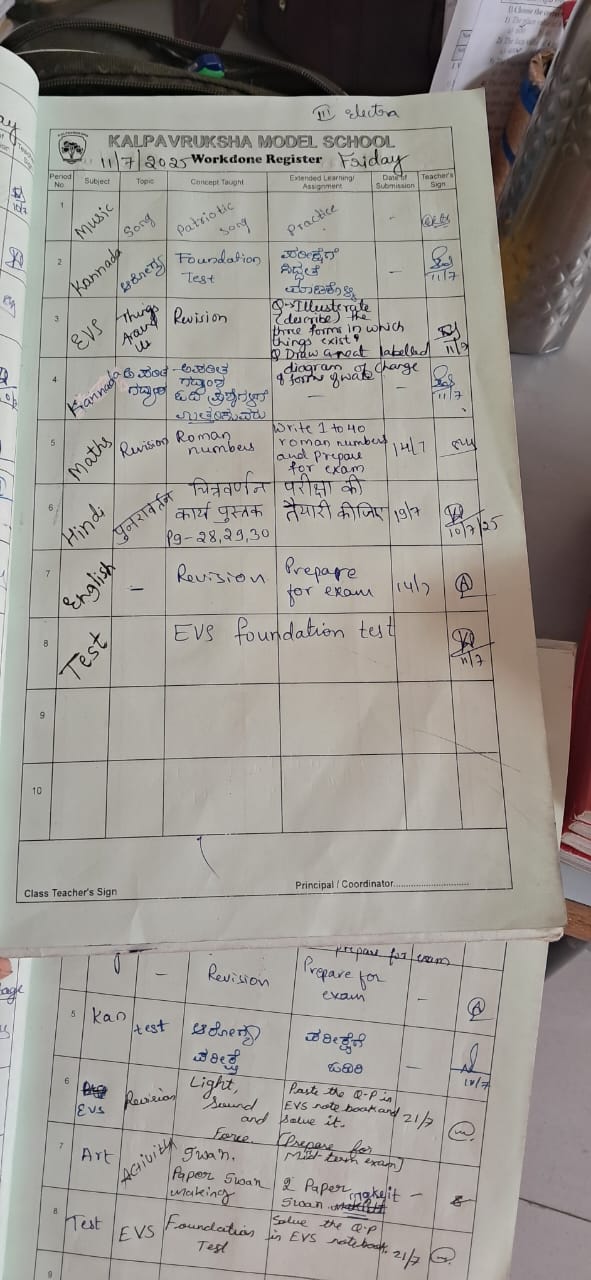 III Electra
KALPAVRUKSHA MODEL SCHOOL
11/7/2025 Workdone Register Friday
Period No Subject Topic Concept Taught Extended Learning/ Assignment Date of Submission Teacher's Sign
1 Music Song Patriotic song Practice -
2 Kannada ಆರೋಗ್ಯ Foundation Test ಪರೀಕ್ಷೆಗೆ ಸಿದ್ಧತೆ ಮಾಡಿಕೊಳ್ಳಿ - 11/7
3 EVS Things Around us Revision Q→Illusterate (describe) the three forms in which things exist? 11/7
Q Draw a neat labelled diagram of change of forms of wate
4 Kannada ಅಪಠಿತ ಗದ್ಯಾಂಶ ಅಪಠಿತ ಗದ್ಯಾಂಶ ಓದಿ ಪ್ರಶ್ನೆಗಳಿಗೆ ಉತ್ತರಿಸುವರು - - 11/7
5 Maths Revision Roman numbers Write 1 to 40 roman numbers and prepare for exam 14/7
6 Hindi पुनरावर्तन चित्रवर्णन कार्य पुस्तक Pg-28,29,30 परीक्षा की तैयारी कीजिए 19/7 10/7/25
7 English - Revision Prepare for exam 14/7
8 Test EVS foundation test 11/7
9
10
Class Teacher's Sign Principal / Coordinator............................
prepare for exam
- Revision Prepare for exam -
5 Kan test ಆರೋಗ್ಯ ಪರೀಕ್ಷೆ ಪರೀಕ್ಷೆಗೆ ಓದಿರಿ - 18/7
6 EVS Revision Light, Sound and Force. Paste the Q-P in EVS note book and solve it. 21/7
[Prepare for Mid-term exam]
7 Art Activity Swan. Paper Swan making 2 Paper Swan make it -
8 Test EVS Foundation Test Solve the Q-P in EVS notebook. 21/7
9